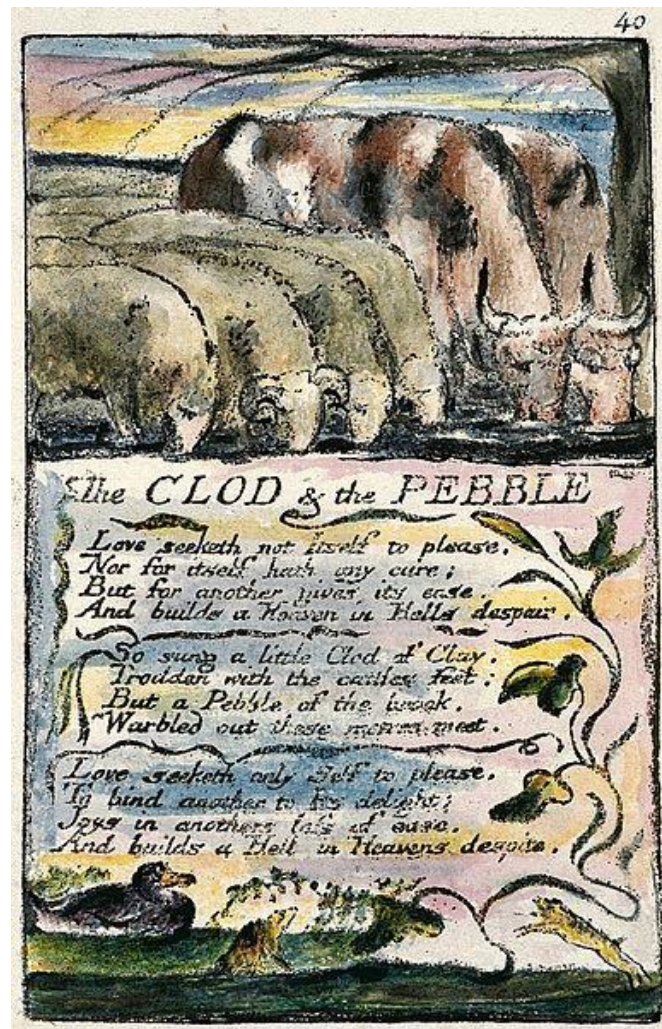 40
The CLOD & the PEBBLE
Love seeketh not Itself to please,
Nor for itself hath any care;
But for another gives its ease.
And builds a Heaven in Hells despair.
So sung a little Clod of Clay,
Trodden with the cattles feet;
But a Pebble of the brook,
Warbled out these metres meet.
Love seeketh only Self to please,
To bind another to Its delight;
Joys in anothers loss of ease,
And builds a Hell in Heavens despite.